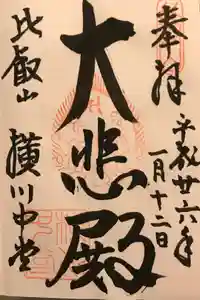 奉拝
平成廿六年
一月十二日
大悲殿
比叡山
横川中堂